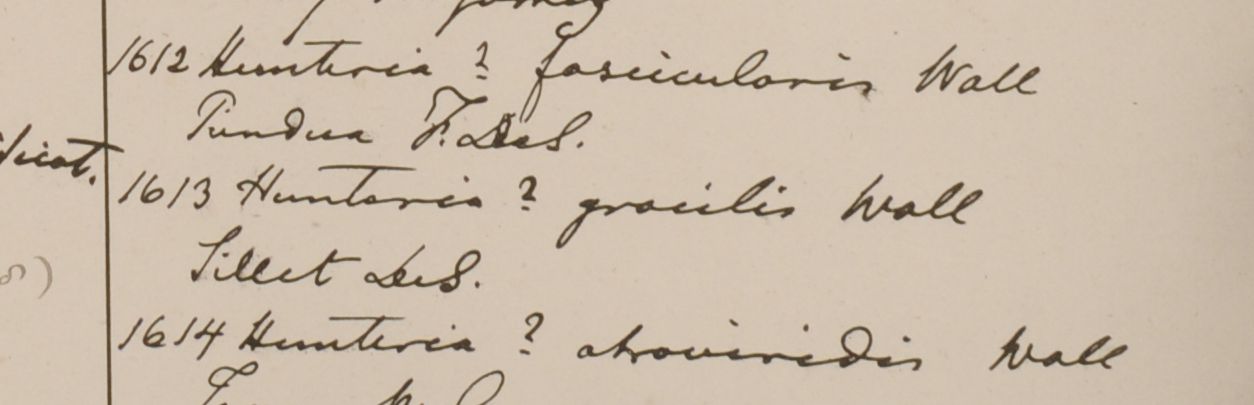 1612 Hunteria ? fascicularis Wall
Pundua F. DeS.
dicat.
1613 Hunteria ? gracilis Wall
Sillet DeS.
1614 Hunteria ? atroviridis Wall